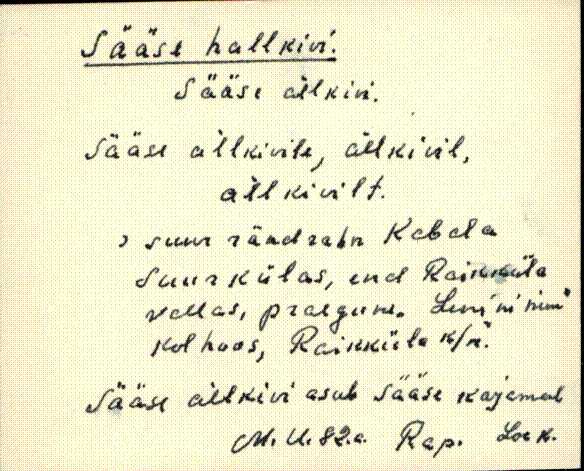 Sääse hallkivi.
Sääse àllkivi.
Sääse àllkivile, àllkivil,
àllkivilt.
suur rändrahn Kabala
Suurkülas, end Raikküla
vallas, praegune. Lenini nim.
kolhoos, Raikküla k/n.
Sääse àllkivi asub Sääse karjamaal
M. U. 82.a. Rap.